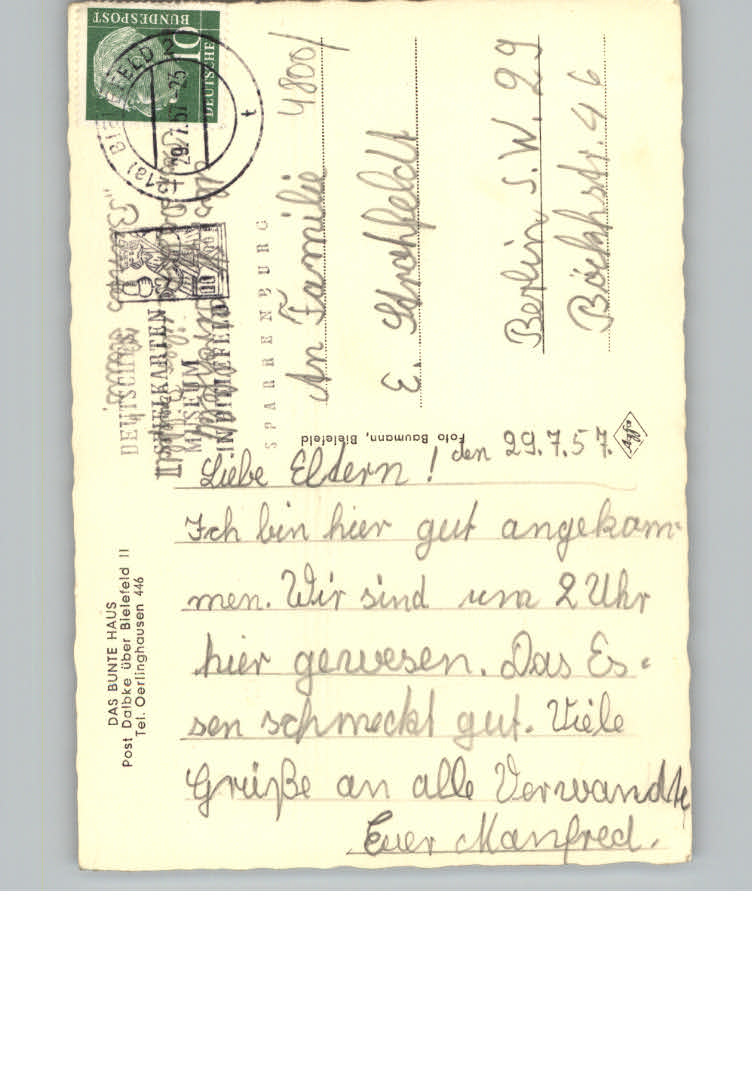 DEUTSCHE
BUNDESPOST
10
(21a) BIELEFELD 2
29.7.57-25
t
DEUTSCHES
SPIELKARTEN
MUSEUM
IN BIELEFELD
SPARRENBURG
An Familie 4800/
E. Strohfeldt
Berlin S.W. 29
Böckhstr. 46
Foto Baumann, Bielefeld
DAS BUNTE HAUS
Post Dalbke über Bielefeld II
Tel. Oerlinghausen 446
den 29.7.57.
Liebe Eltern!
Ich bin hier gut angekom-
men. Wir sind um 2 Uhr
hier gewesen. Das Es-
sen schmeckt gut. Viele
Grüße an alle Verwandte
Euer Manfred.